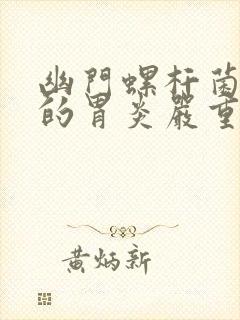 幽門螺杆菌
的胃炎嚴重
黄炳新